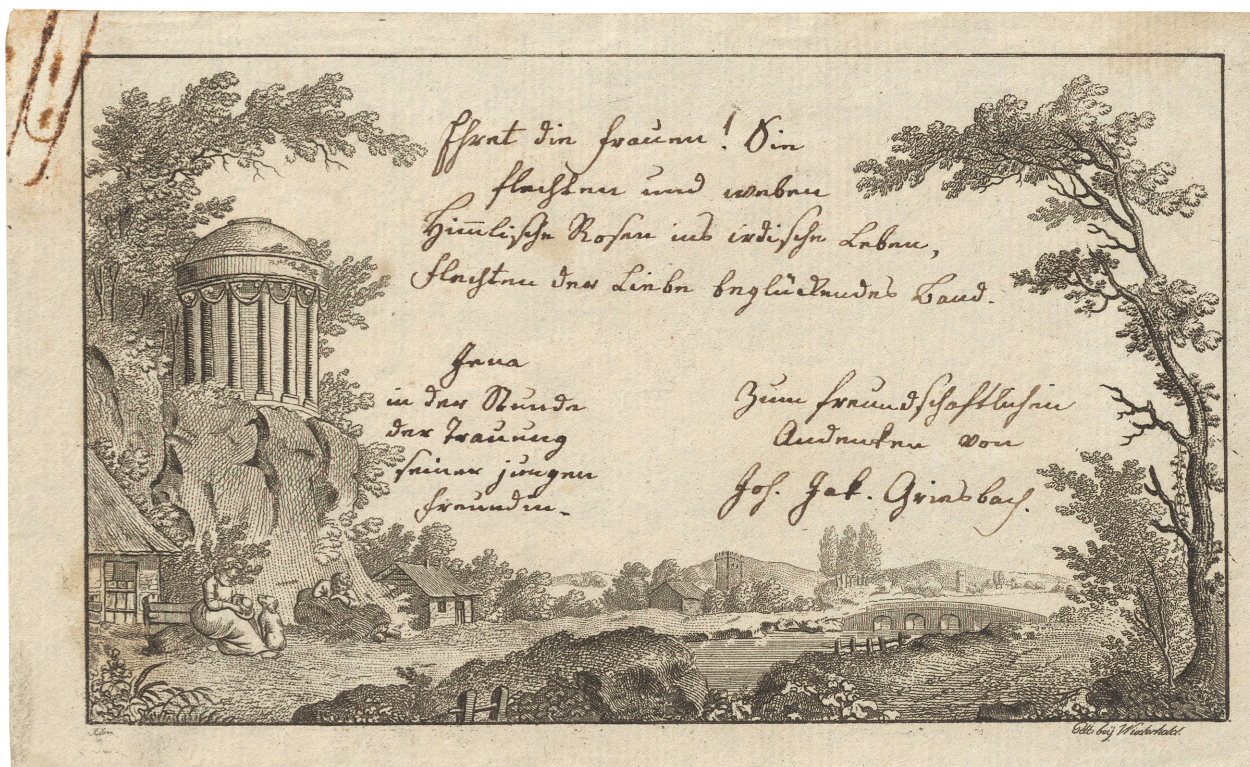 Ehret die Frauen! Sie
flechten und weben
Him̅lische Rosen ins irdische Leben,
flechten der Liebe beglückendes Band.
Jena
in der Stunde
der Trauung
seiner jungen
Freundin.
Zum freundschaftlichen
Andenken von
Joh. Jak. Griesbach.